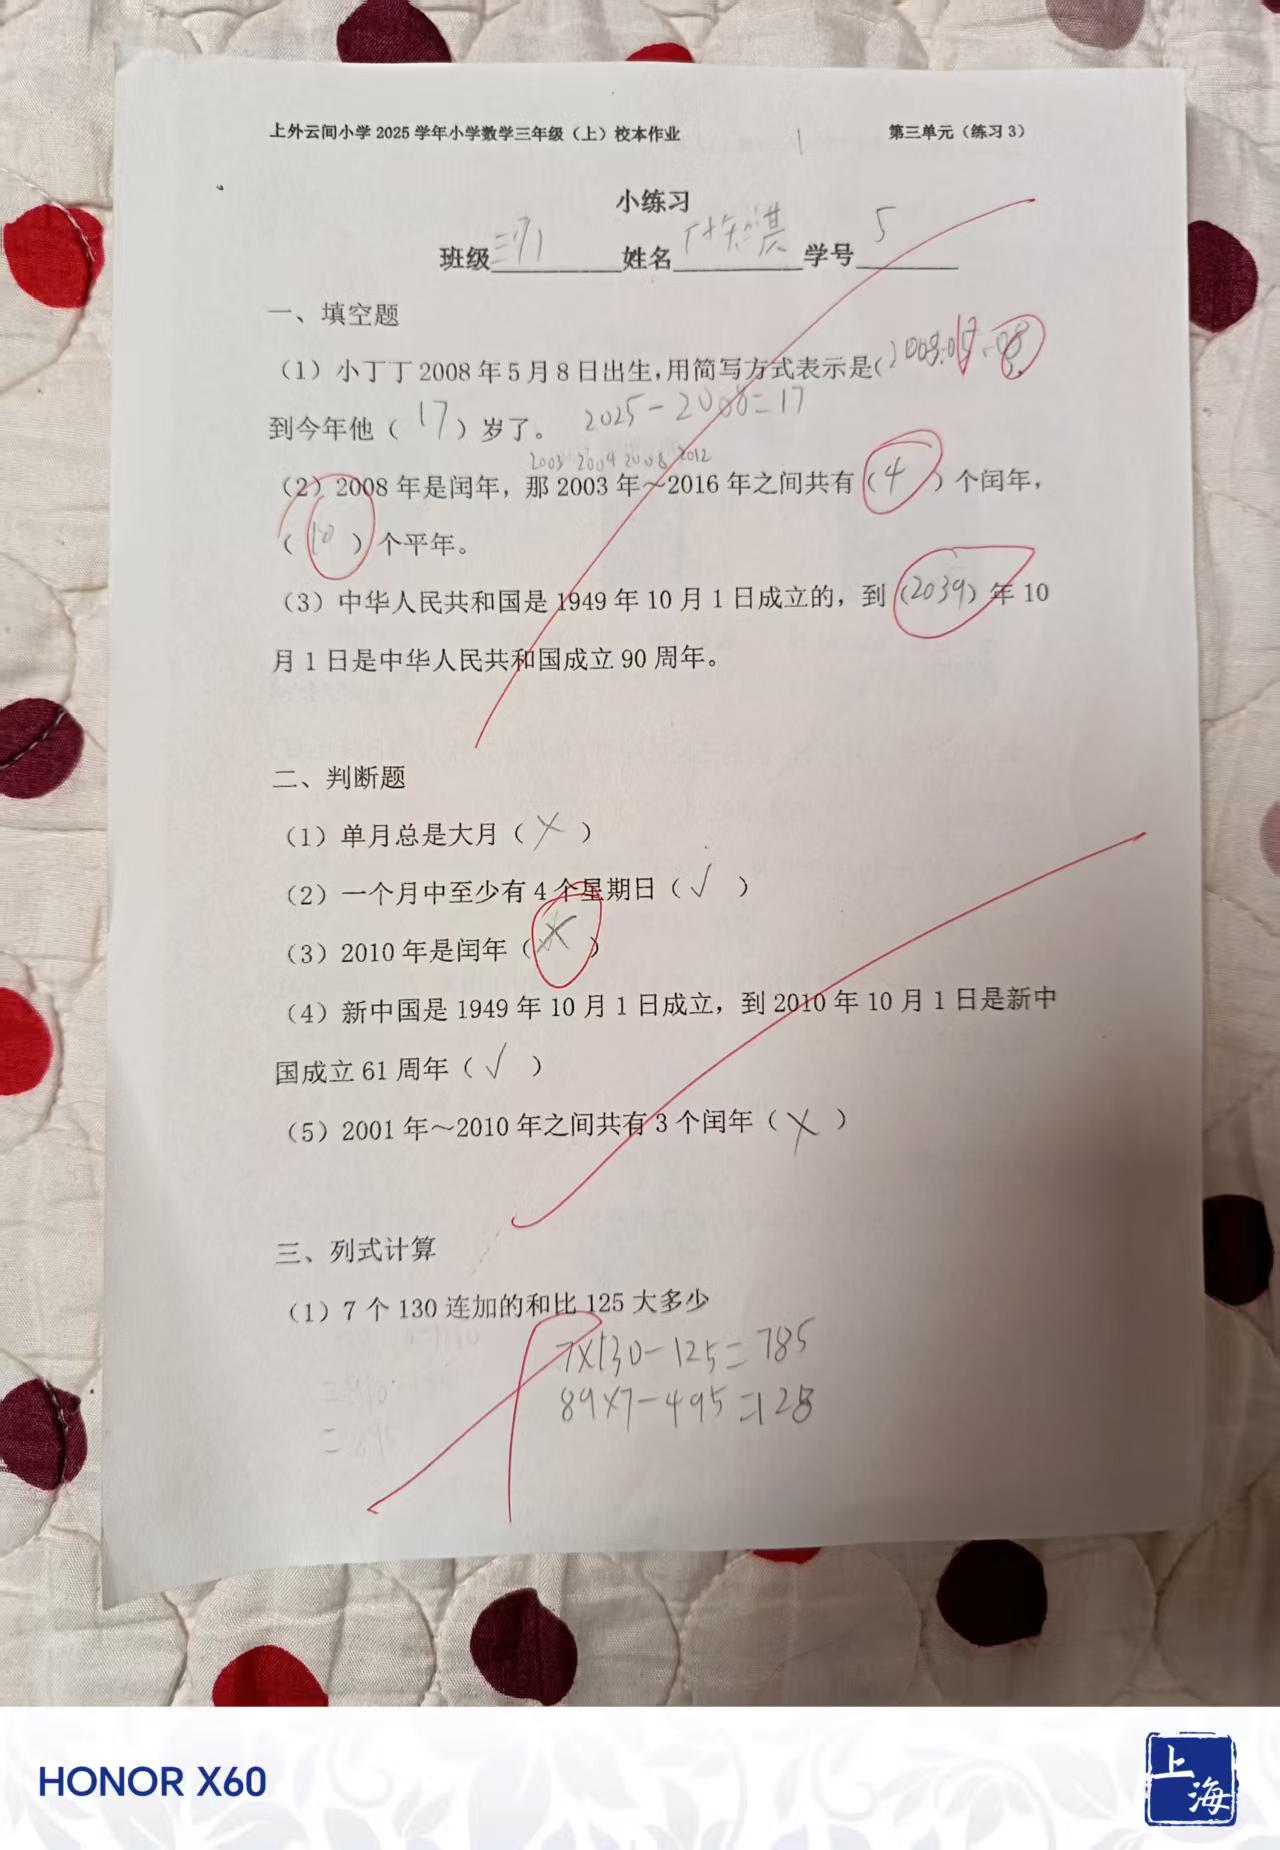 上外云间小学 2025 学年小学数学三年级（上）校本作业 第三单元（练习 3）
小练习
班级 三(7) 姓名 学号 5
一、填空题
（1）小丁丁 2008 年 5 月 8 日出生，用简写方式表示是（2008.05.08
到今年他（ 17 ）岁了。 2025-2008=17
2003 2004 2008 2012
（2）2008 年是闰年，那 2003 年～2016 年之间共有（ 4 ）个闰年，
（ 10 ）个平年。
（3）中华人民共和国是 1949 年 10 月 1 日成立的，到（2039）年 10
月 1 日是中华人民共和国成立 90 周年。
二、判断题
（1）单月总是大月（ × ）
（2）一个月中至少有 4 个星期日（ √ ）
（3）2010 年是闰年（ × ）
（4）新中国是 1949 年 10 月 1 日成立，到 2010 年 10 月 1 日是新中
国成立 61 周年（ √ ）
（5）2001 年～2010 年之间共有 3 个闰年（ × ）
三、列式计算
（1）7 个 130 连加的和比 125 大多少
7×130-125=785
89×7-495=128
HONOR X60
上海